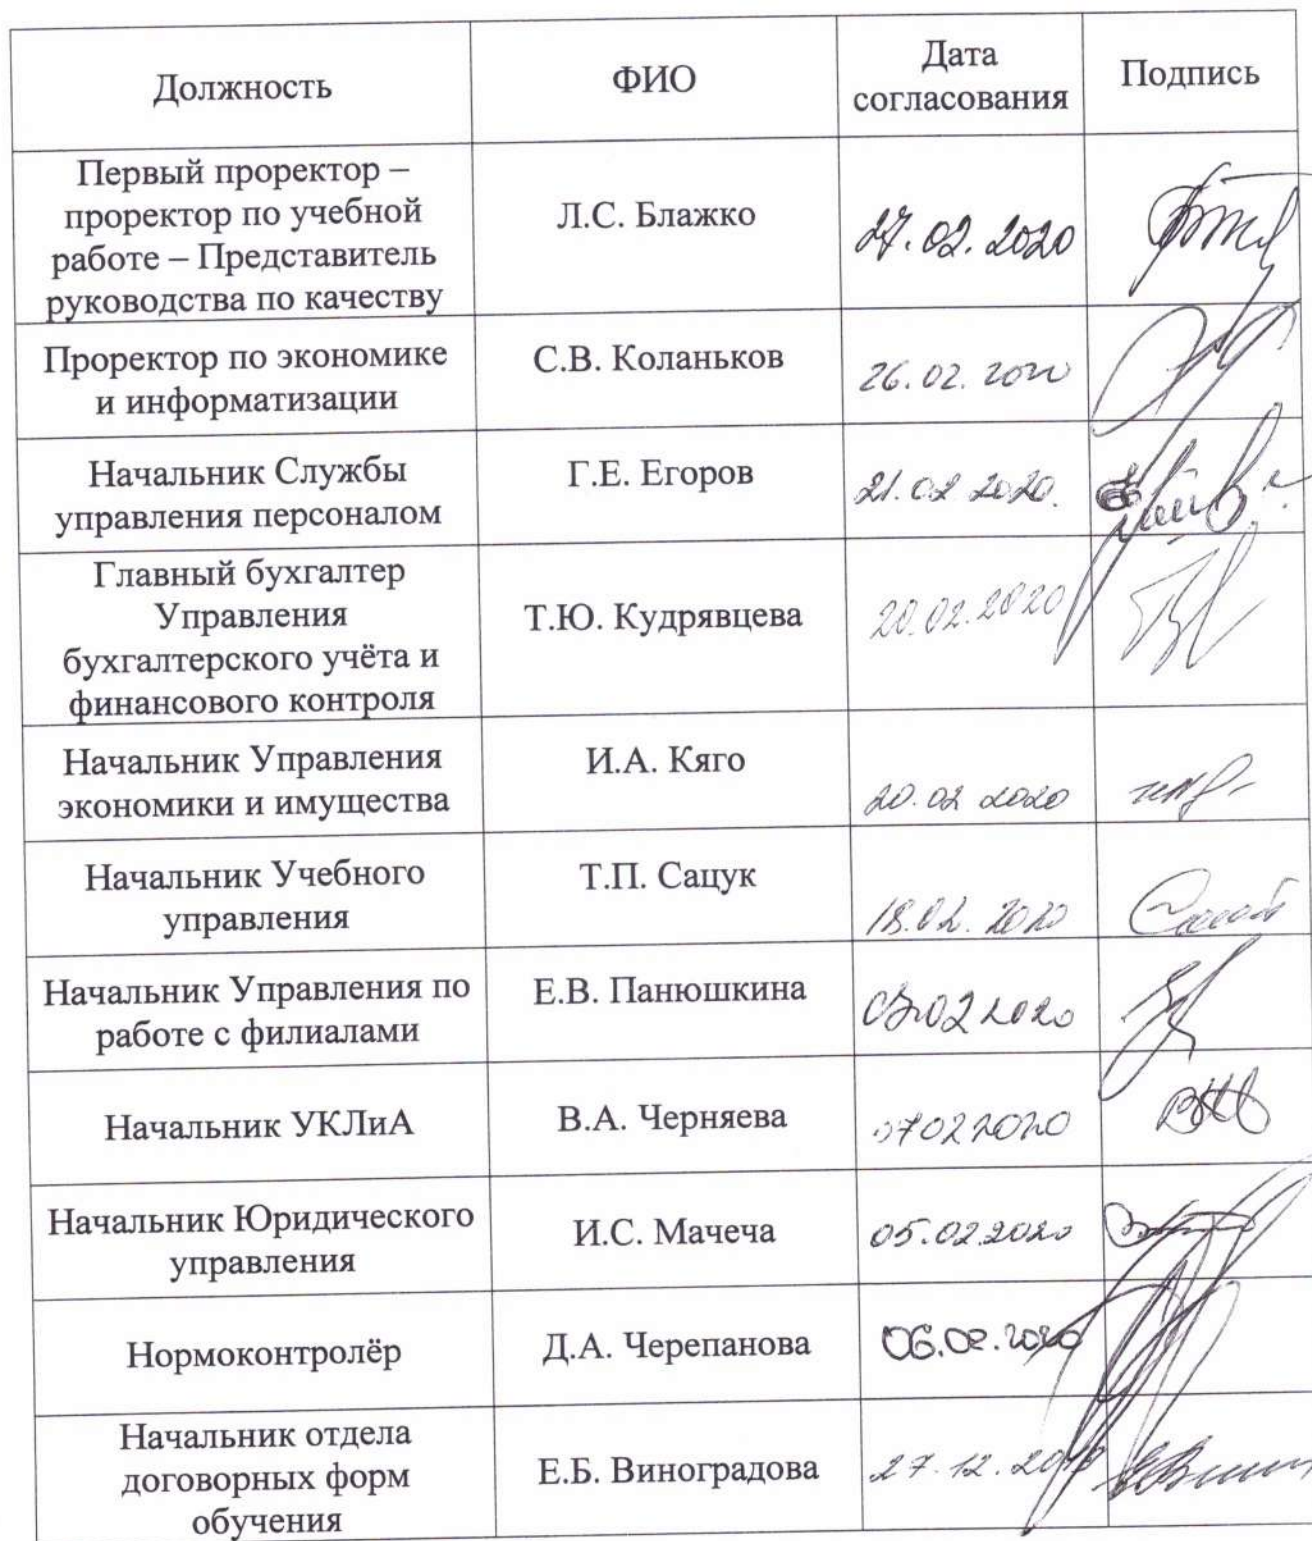 Должность
ФИО
Дата
согласования
Подпись
Первый проректор –
проректор по учебной
работе – Представитель
руководства по качеству
Л.С. Блажко
27.02.2020
Проректор по экономике
и информатизации
С.В. Коланьков
26.02.2020
Начальник Службы
управления персоналом
Г.Е. Егоров
21.02 2020.
Главный бухгалтер
Управления
бухгалтерского учёта и
финансового контроля
Т.Ю. Кудрявцева
20.02.2020
Начальник Управления
экономики и имущества
И.А. Кяго
20.02 2020
Начальник Учебного
управления
Т.П. Сацук
18.02.2020
Начальник Управления по
работе с филиалами
Е.В. Панюшкина
Начальник УКЛиА
В.А. Черняева
07022020
Начальник Юридического
управления
И.С. Мачеча
05.02.2020
Нормоконтролёр
Д.А. Черепанова
06.02.2020
Начальник отдела
договорных форм
обучения
Е.Б. Виноградова